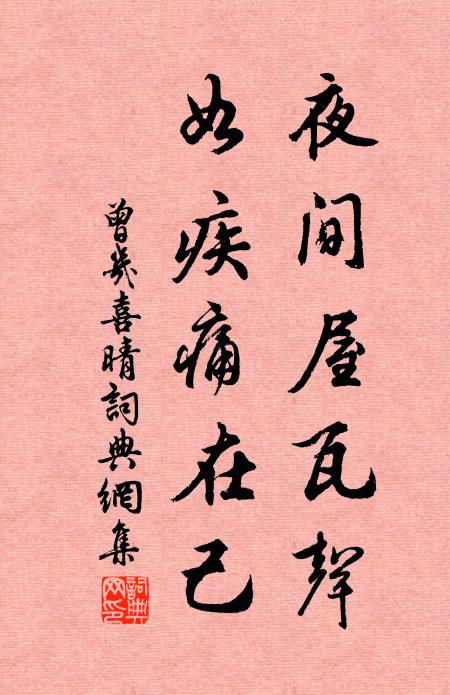 夜間屋瓦聲
如疾痛在己
曾幾喜晴詞典網集
詞典網印